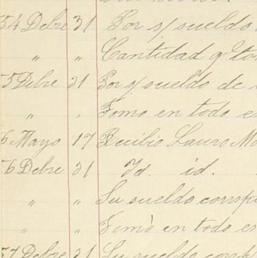 54 Debre 31 Por s/ sueldo
" " Cantidad q' to
5 Debre 31 Por s/ sueldo de
" " Tomo en todo e
6 Mayo 17 Lauro Mo
6 Debre 31 Id. id.
" " Su sueldo corresp
" " Tomó en todo e
57 Debre 31 Su sueldo